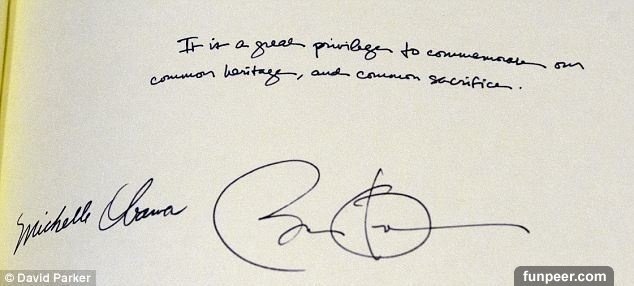 It is a great privilege to commemorate our
common heritage, and common sacrifice.
Michelle Obama
© David Parker
funpeer.com